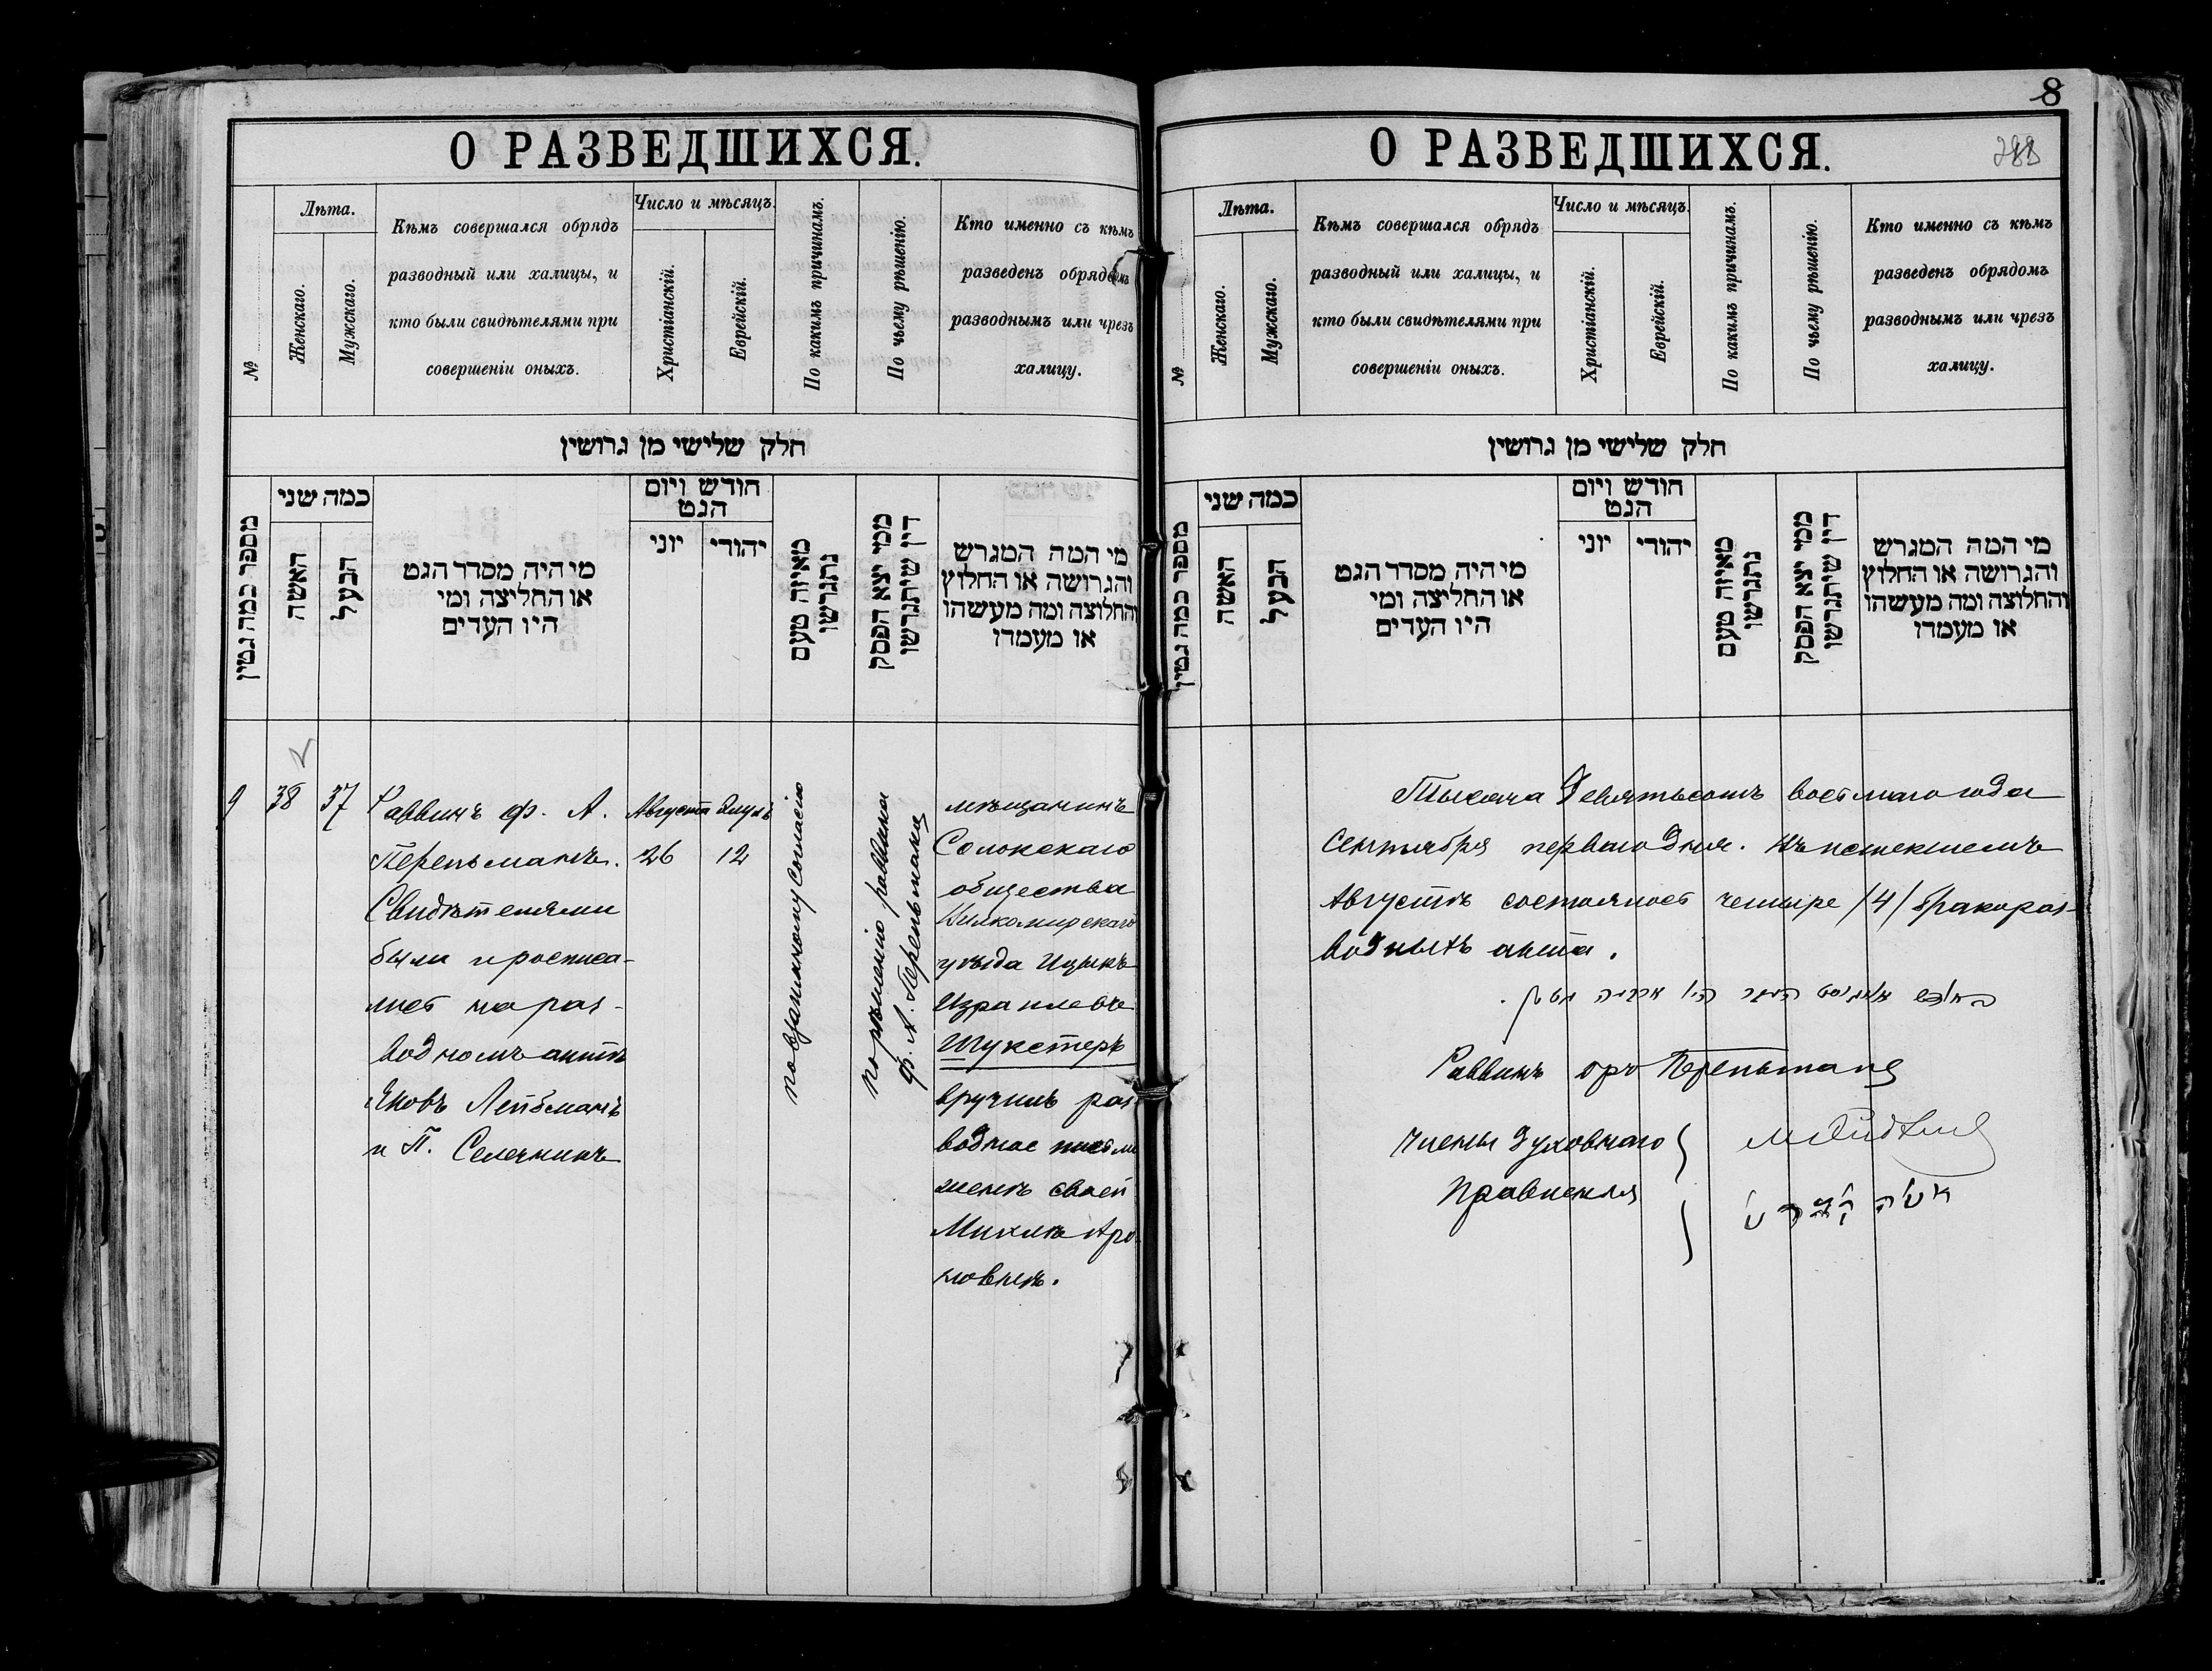 О РАЗВЕДШИХСЯ.
№
Лѣта.
Женскаго.
Мужскаго.
Кѣмъ совершался обрядъ
разводный или халицы, и
кто были свидѣтелями при
совершеніи оныхъ.
Число и мѣсяцъ.
Христіанскій.
Еврейскій.
По какимъ причинамъ.
По чьему рѣшенію.
Кто именно съ кѣмъ
разведенъ обрядомъ
разводнымъ или чрезъ
халицу.
חלק שלישי מן גרושין
מספר כמה גטין
כמה שני
האשה
הבעל
מי היה מסדר הגט
או החליצה ומי
היו העדים
חודש ויום
הגט
יוני
יהודי
מאיזה טעם
נתגרשו
ממי יצא הפסק
דין שיתגרשו
מי המה המגרש
והגרושה או החלוץ
והחלוצה ומה מעשהו
או מעמדו
9
38
37
Раввинъ ф. А.
Перельманъ.
Свидѣтелями
были и росписа-
лись на раз-
водномъ актѣ
Яковъ Лейбманъ
и П. Селечникъ
Августа
26
Элулъ
12
по взаимному согласію
по рѣшенію раввина
ф. А. Перельмана
мѣщанинъ
Солокскаго
общества
Вилкомирскаго
уѣзда Ицыкъ
Израилевъ
Шукстеръ
вручилъ раз-
водное письмо
женѣ своей
Михлѣ Аро-
новнѣ.
8
288
О РАЗВЕДШИХСЯ.
№
Лѣта.
Женскаго.
Мужскаго.
Кѣмъ совершался обрядъ
разводный или халицы, и
кто были свидѣтелями при
совершеніи оныхъ.
Число и мѣсяцъ.
Христіанскій.
Еврейскій.
По какимъ причинамъ.
По чьему рѣшенію.
Кто именно съ кѣмъ
разведенъ обрядомъ
разводнымъ или чрезъ
халицу.
חלק שלישי מן גרושין
מספר כמה גטין
כמה שני
האשה
הבעל
מי היה מסדר הגט
או החליצה ומי
היו העדים
חודש ויום
הגט
יוני
יהודי
מאיזה טעם
נתגרשו
ממי יצא הפסק
דין שיתגרשו
מי המה המגרש
והגרושה או החלוץ
והחלוצה ומה מעשהו
או מעמדו
Тысяча Девятьсотъ восьмаго года
Сентября перваго дня. Въ истекшемъ
Августѣ состоялось четыре /4/ бракораз-
водныхъ акта.
בחודש אויגוסט העבר היו ארבעה גטין.
Раввинъ Перельманъ
Члены Духовнаго
Правленія